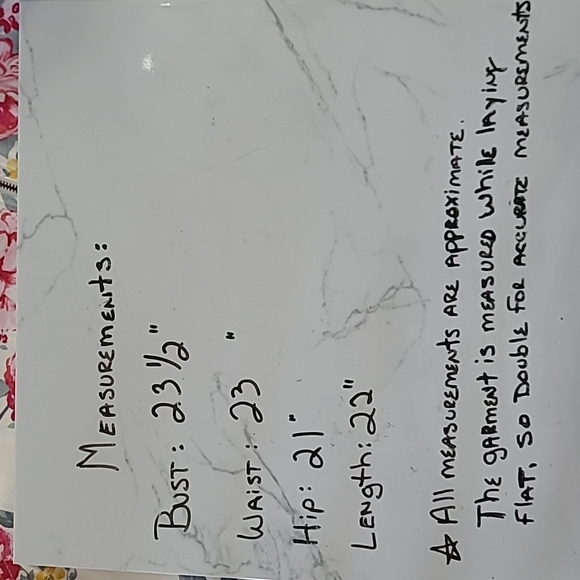 Measurements:
Bust: 23 1/2"
Waist: 23"
Hip: 21"
Length: 22"
☆ All measurements are approximate.
The garment is measured while laying
flat, so double for accurate measurements